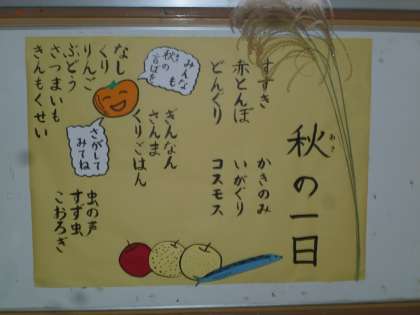 秋の一日
あき
すすき
赤とんぼ
どんぐり
かきのみ
いがぐり
コスモス
ぎんなん
さんま
くりごはん
みんなも
秋の
言葉を
さがして
みてね
なし
くり
りんご
ぶどう
さつまいも
きんもくせい
虫の声
すず虫
こおろぎ